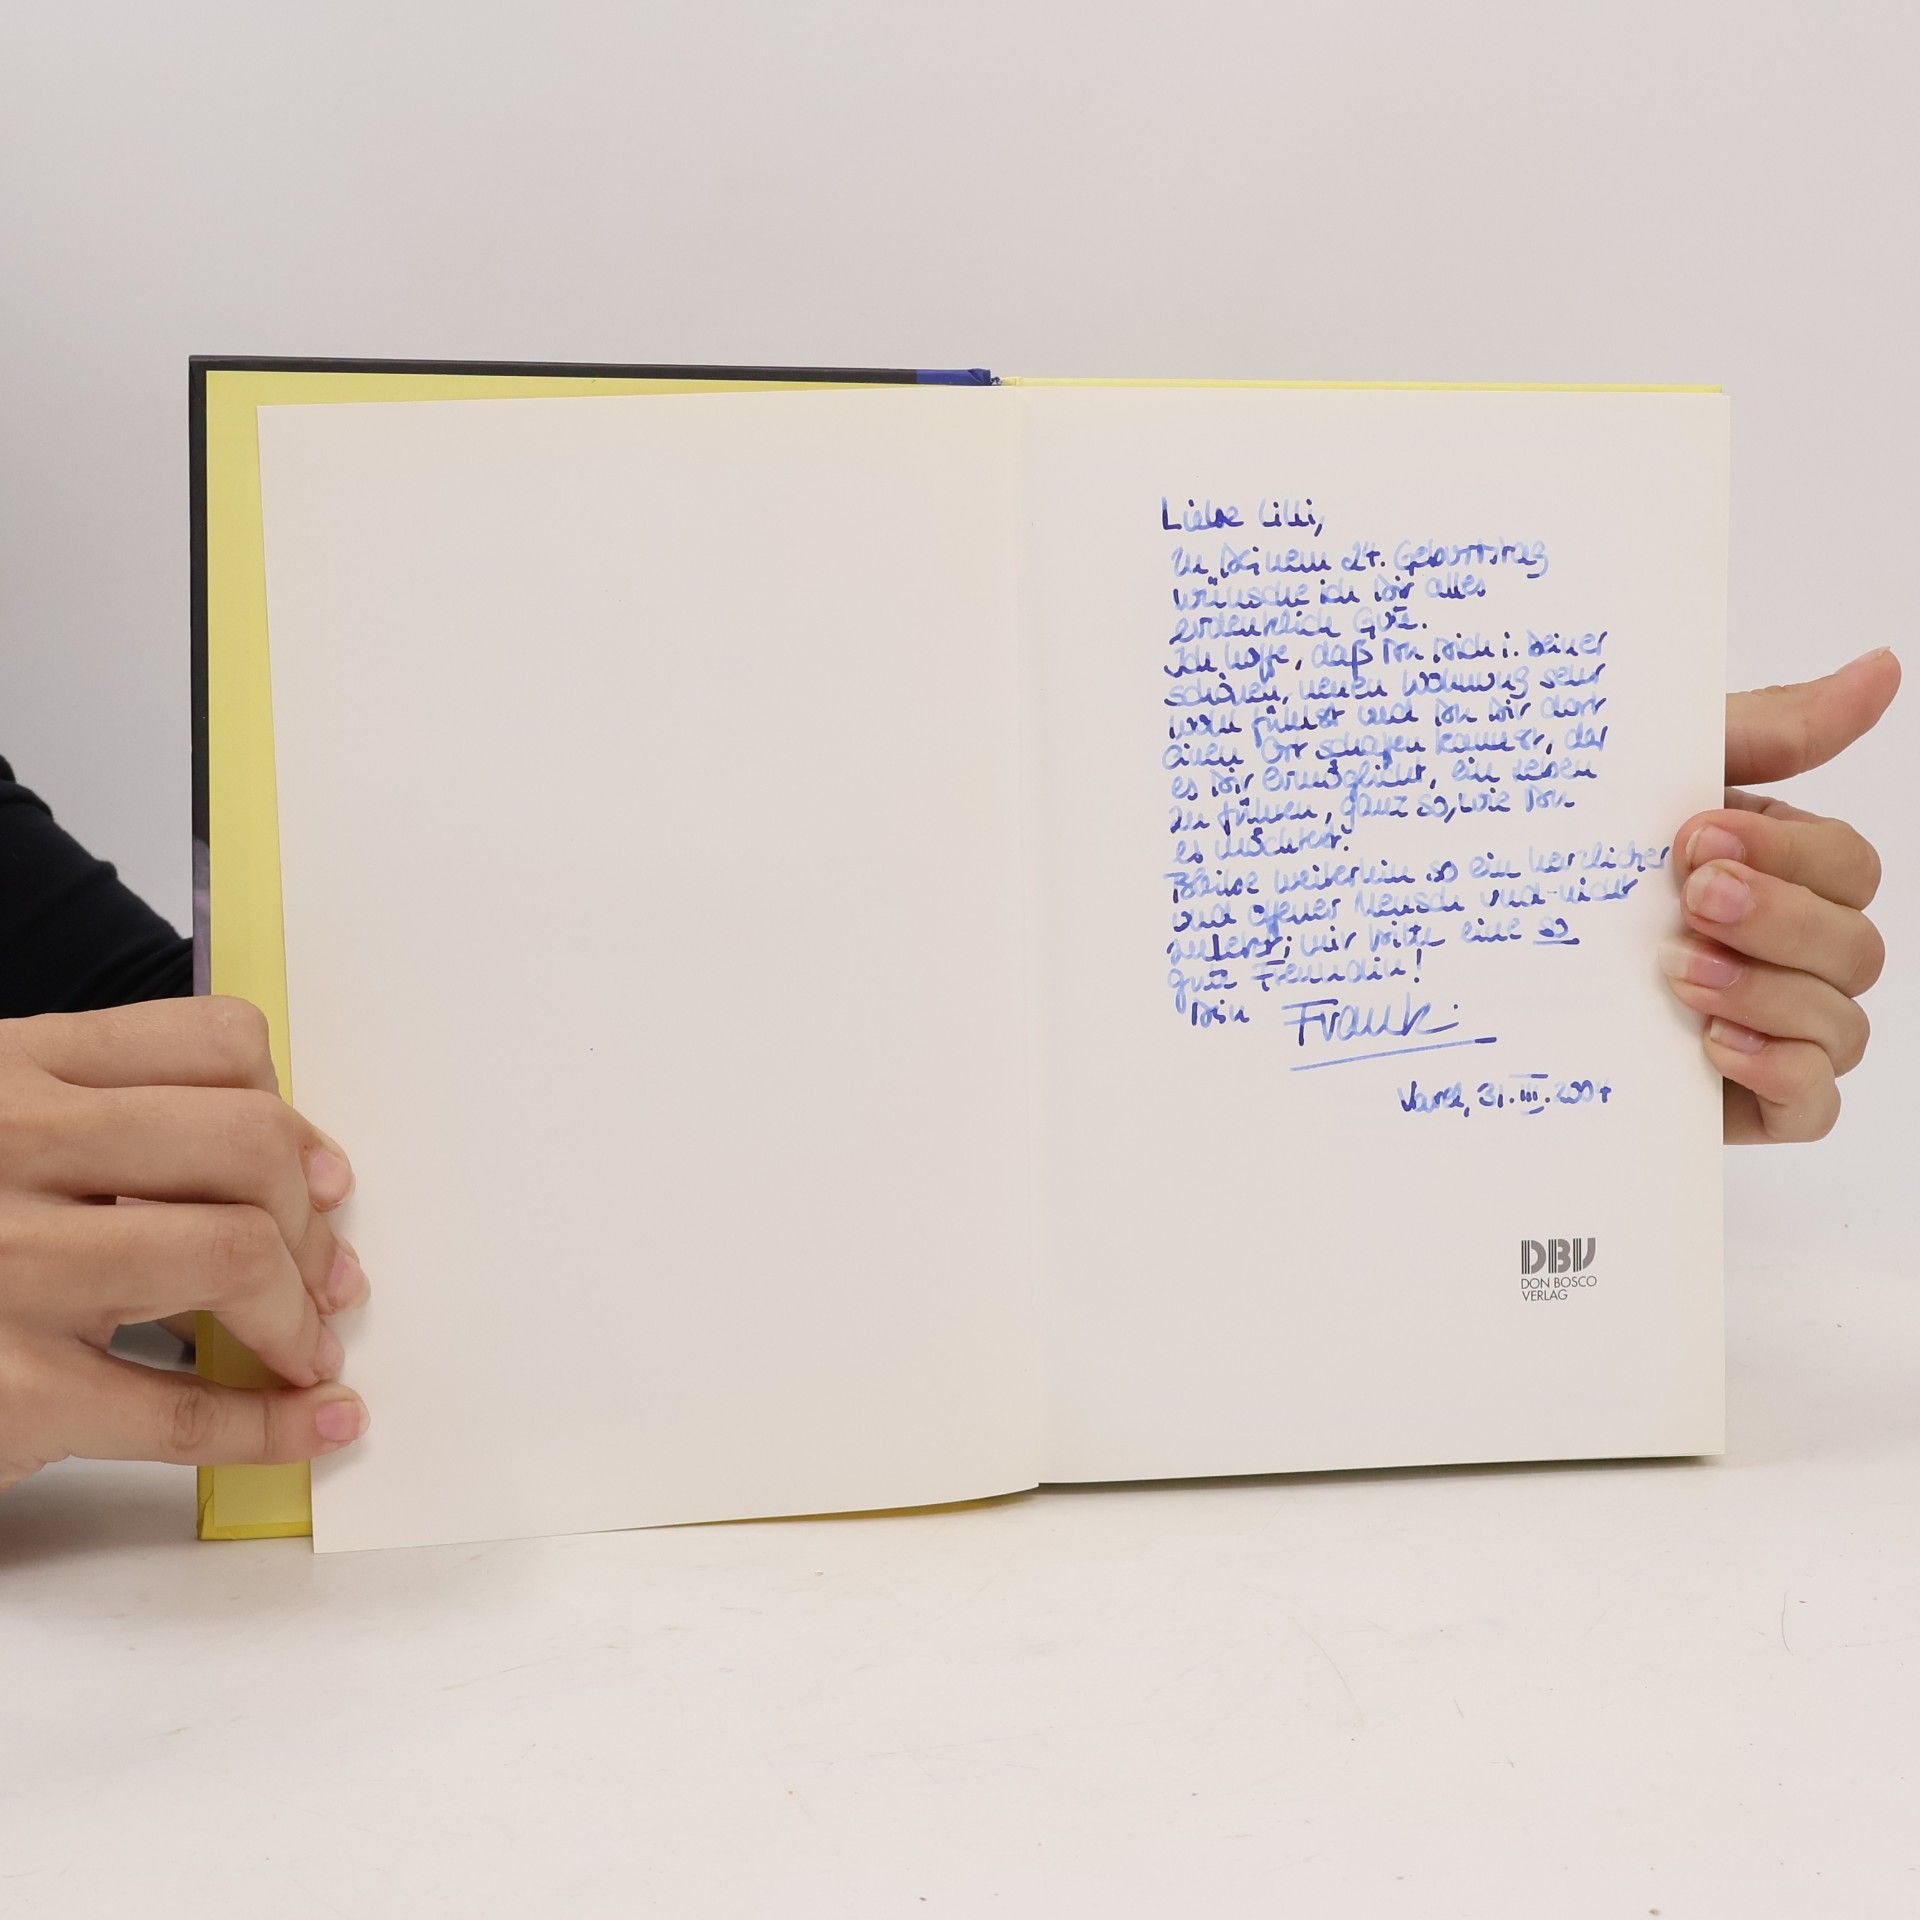 Liebe Lilli,
zu Deinem 24. Geburtstag
wünsche ich Dir alles
erdenklich Gute.
Ich hoffe, daß Du Dich i. Deiner
schönen, neuen Wohnung sehr
wohl fühlst und Du Dir dort
einen Ort schaffen kannst, der
es Dir ermöglicht, ein Leben
zu führen, ganz so, wie Du
es möchtest.
Bleibe weiterhin so ein herzlicher
und offener Mensch und - nicht
zuletzt; mir bitte eine so
gute Freundin!
Dein Frank.
Varel, 31. III. 2004
DBV
DON BOSCO
VERLAG